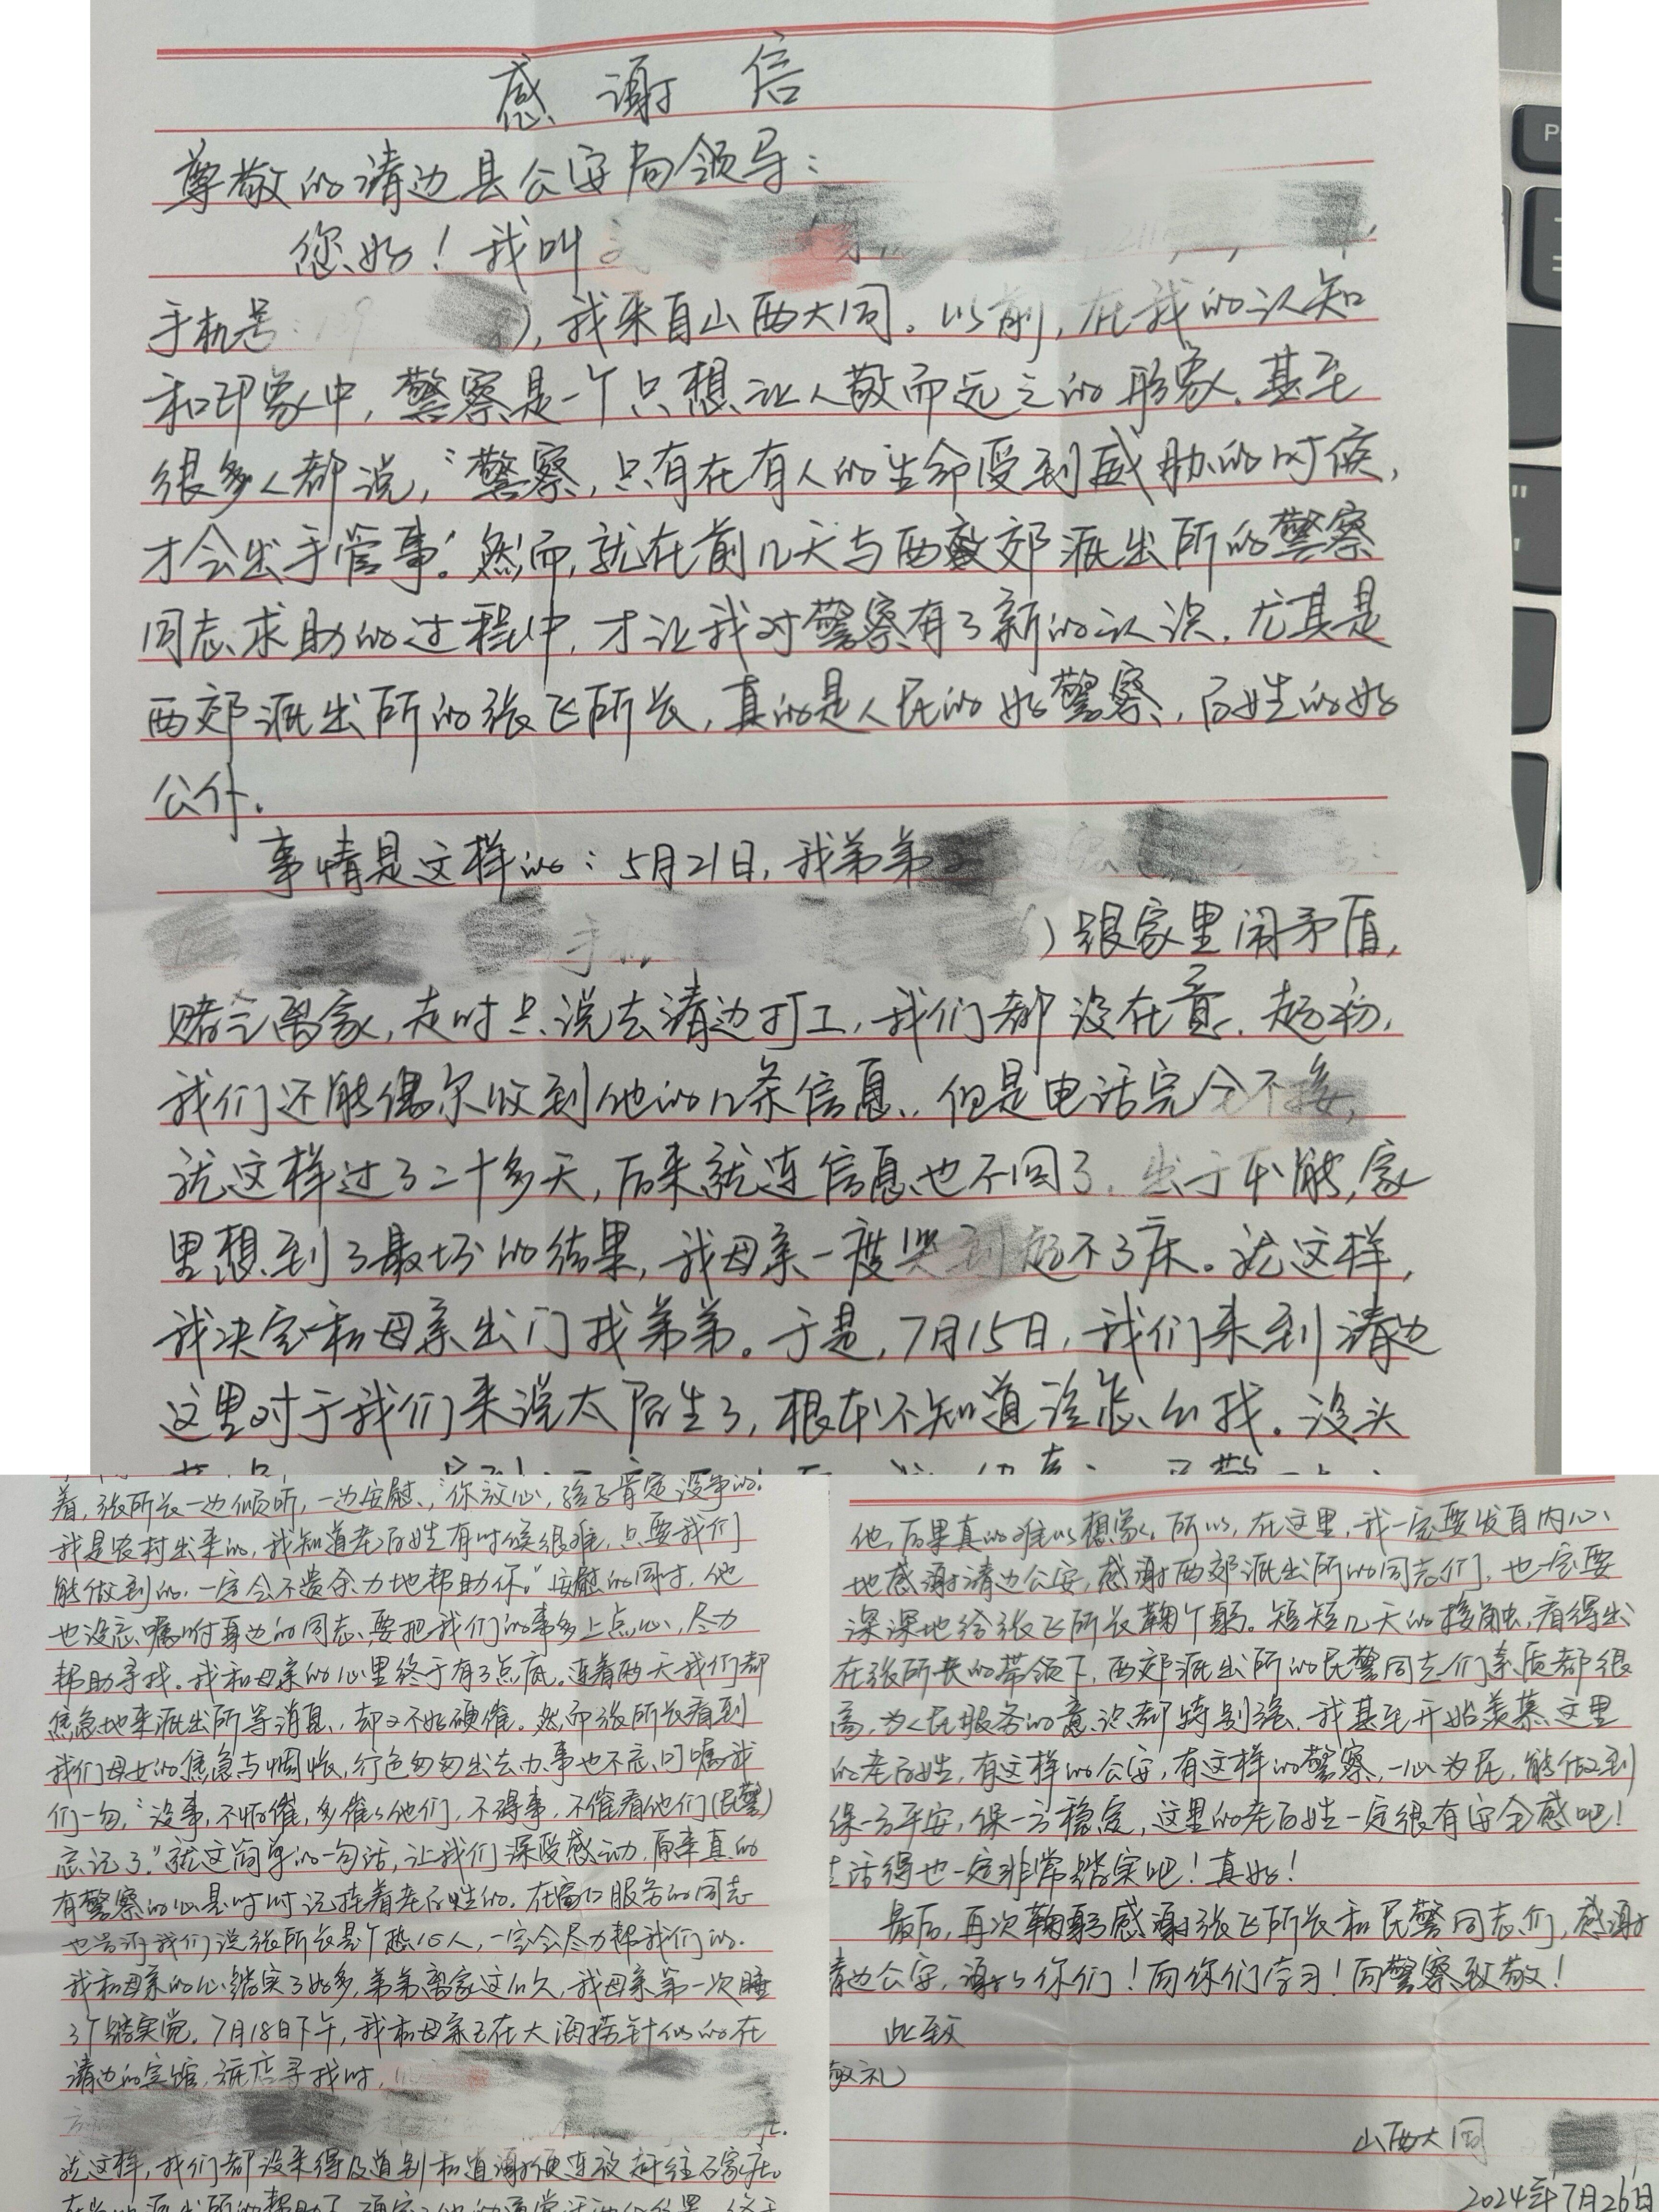 感谢信
尊敬的靖边县公安局领导：
您好！我叫
手机号：），我来自山西大同。以前，在我的认知
和印象中，警察是一个只想让人敬而远之的形象。甚至
很多人都说，“警察，只有在有人的生命受到威胁的时候，
才会出手管事”。然而，就在前几天与西郊派出所的警察
同志求助的过程中，才让我对警察有了新的认识。尤其是
西郊派出所的张飞所长，真的是人民的好警察，百姓的好
公仆。
事情是这样的：5月21日，我弟弟
）跟家里闹矛盾，
赌气离家，走时只说去靖边打工，我们都没在意。起初，
我们还能偶尔收到他的几条信息，但是电话完全不接，
就这样过了二十多天，后来就连信息也不回了。出于本能，家
里想到了最坏的结果，我母亲一度哭到起不了床。就这样，
我决定和母亲出门找弟弟。于是，7月15日，我们来到靖边
这里对于我们来说太陌生了，根本不知道该怎么找。没头
着，张所长一边倾听，一边安慰，“你放心，孩子肯定没事的。
我是农村出来的，我知道老百姓有时候很难，只要我们
能做到的，一定会不遗余力地帮助你。”安慰的同时，他
也没忘嘱咐身边的同志，要把我们的事多上点心，尽力
帮助寻找。我和母亲的心里终于有了点底。连着两天我们都
焦急地来派出所等消息，却又不好硬催。然而张所长看到
我们母女的焦急与惆怅，行色匆匆出去办事也不忘叮嘱我
们一句，“没事，不怕催，多催催他们，不碍事，不催看他们（民警）
忘记了。”就这简单的一句话，让我们深受感动，原来真的
有警察的心是时时记挂着老百姓的。在窗口服务的同志
也告诉我们说张所长是个热心人，一定会尽力帮我们的。
我和母亲的心踏实了好多，弟弟离家这么久，我母亲第一次睡
了个踏实觉。7月18日下午，我和母亲正在大海捞针似的在
靖边的宾馆，旅店寻找时，
就这样，我们都没来得及道别和道谢便连夜赶往石家庄。
他，后果真的难以想象。所以，在这里，我一定要发自内心
地感谢靖边公安，感谢西郊派出所的同志们，也一定要
深深地给张飞所长鞠个躬。短短几天的接触，看得出
在张所长的带领下，西郊派出所的民警同志们素质都很
高，为人民服务的意识都特别强，我甚至开始羡慕这里
的老百姓，有这样的公安，有这样的警察，一心为民，能做到
保一方平安，保一方稳定，这里的老百姓一定很有安全感吧！
活得也一定非常踏实吧！真好！
最后，再次鞠躬感谢张飞所长和民警同志们，感谢
靖边公安，谢谢你们！向你们学习！向警察致敬！
此致
敬礼
山西大同
2024年7月26日